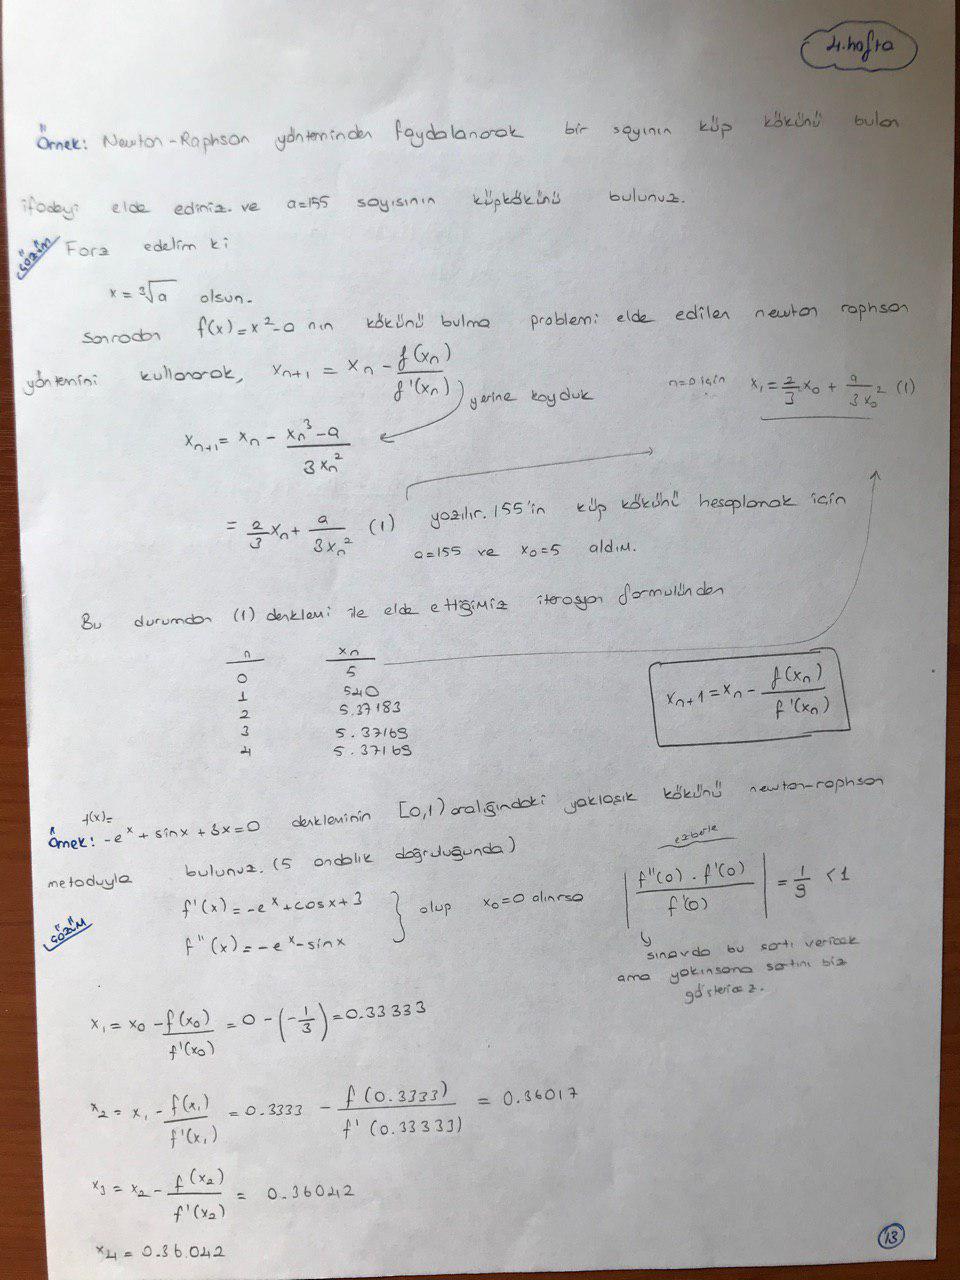 4.hafta
Örnek: Newton-Raphson yönteminden faydalanarak bir sayının küp kökünü bulan
ifadeyi elde ediniz. ve a=155 sayısının küpkökünü bulunuz.
ÇÖZÜM Farz edelim ki
x = ∛a olsun.
Sonradan f(x) = x²-a nın kökünü bulma problemi elde edilen newton raphson
yöntemini kullanarak, xₙ₊₁ = xₙ - f(xₙ)/f'(xₙ) yerine koyduk
n=0 için x₁ = 2/3 x₀ + a/3x₀² (1)
xₙ₊₁ = xₙ - (xₙ³-a)/3xₙ²
= 2/3 xₙ + a/3xₙ² (1) yazılır. 155'in küp kökünü hesaplamak için
a=155 ve x₀=5 aldım.
Bu durumdan (1) denklemi ile elde ettiğimiz iterasyon formulünden
n xₙ
0 5
1 540
2 5.37183
3 5.37169
4 5.37169
xₙ+1 = xₙ - f(xₙ)/f'(xₙ)
f(x)=
Örnek: -eˣ + sinx + 3x=0 denkleminin [0,1) aralığındaki yaklaşık kökünü newton-raphson
metoduyla bulunuz. (5 ondalık doğruluğunda)
ezberle
ÇÖZÜM
f'(x) = -eˣ+cosx+3
f''(x) = -eˣ-sinx
} olup x₀=0 alınırsa
|f''(0) . f'(0) / f'(0)| = 1/9 < 1
sınavda bu şartı vericek
ama yakınsama şartını biz
göstericez.
x₁ = x₀ - f(x₀)/f'(x₀) = 0 - (-1/3) = 0.33333
x₂ = x₁ - f(x₁)/f'(x₁) = 0.3333 - f(0.3333)/f'(0.33333) = 0.36017
x₃ = x₂ - f(x₂)/f'(x₂) = 0.36042
x₄ = 0.36.042
13